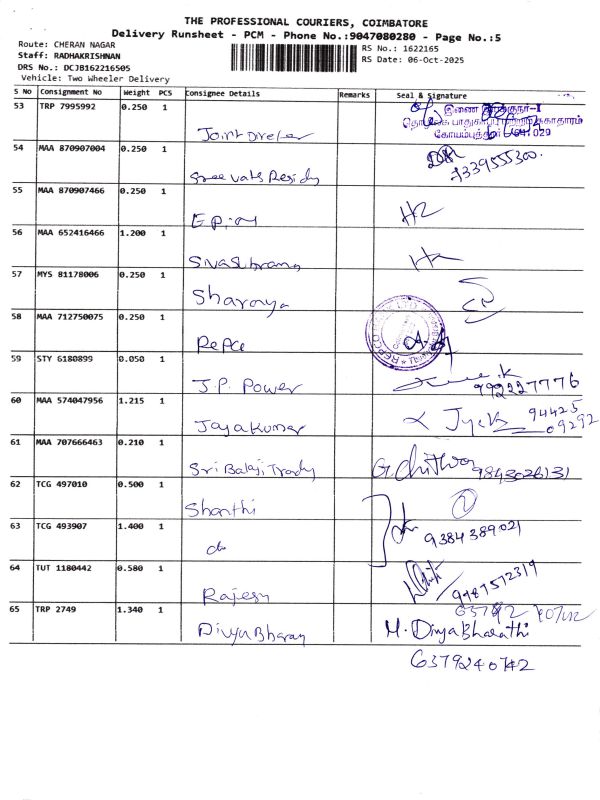 THE PROFESSIONAL COURIERS, COIMBATORE
Delivery Runsheet - PCM - Phone No.:9047080280 - Page No.:5
Route: CHERAN NAGAR
RS No.: 1622165
Staff: RADHAKRISHNAN
RS Date: 06-Oct-2025
DRS No.: DCJB162216505
Vehicle: Two Wheeler Delivery
S NO Consignment No Weight PCS Consignee Details Remarks Seal & Signature
53 TRP 7995992 0.250 1
இணை இயக்குநர்-I
கோயம்புத்தூர் 641 029
Joint
54 MAA 870907004 0.250 1
7339555300.
Sree vats Residy
55 MAA 870907466 0.250 1
56 MAA 652416466 1.200 1
57 MYS 81178006 0.250 1
Sharanya
58 MAA 712750075 0.250 1
Repco
59 STY 6180899 0.050 1
J.P. Power
992227776
60 MAA 574047956 1.215 1
94425
09292
Jayakumar
61 MAA 707666463 0.210 1
Sri Balaji Trady
9843026131
62 TCG 497010 0.500 1
Shanthi
63 TCG 493907 1.400 1
9384389021
do
64 TUT 1180442 0.580 1
9487572319
Rajesh
65 TRP 2749 1.340 1
Divya Bharan
M. Divya Bharathi
6379240742